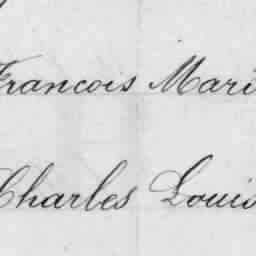 Francois Mari
Charles Louis